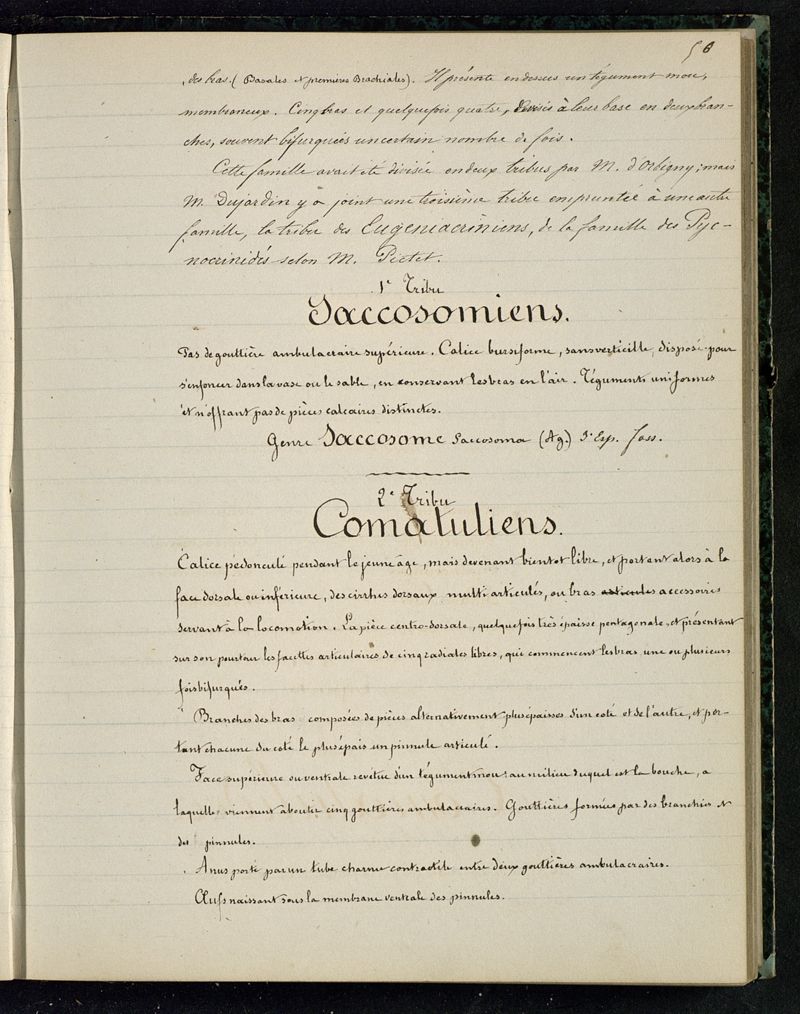 56
des bras. (Basales et premières Brachiales). Il présente en dessus un tégument mou,
membraneux. Cinq bras et quelquefois quatre, divisés à leur base en deux bran-
ches, souvent bifurquées un certain nombre de fois.
Cette famille avait été divisée en deux tribus par M. d'Orbigny; mais
M. Dujardin y a joint une troisième tribu empruntée à une autre
famille, la tribu des Eugeniacriniens, de la famille des Pyc-
nocrinidés selon M. Pictet.
1e Tribu
Saccosomiens.
Pas de gouttière ambulacraire supérieure. Calice bursiforme, sans verticille, disposé pour
s'enfoncer dans la vase ou le sable, en conservant les bras en l'air. Téguments uniformes
et n'offrant pas de pièces calcaires distinctes.
Genre Saccosome Saccosoma (Ag.) Esp. foss.
2e Tribu
Comatuliens.
Calice pédonculé pendant le jeune âge, mais devenant bientôt libre, et portant alors à la
face dorsale ou inférieure, des cirrhes dorsaux multi articulés, ou bras articulés accessoires
servant à la locomotion. La pièce centro-dorsale, quelquefois très épaisse pentagonale, et présentant
sur son pourtour les facettes articulaires de cinq radiales libres, qui commencent les bras une ou plusieurs
fois bifurqués.
Branches des bras composées de pièces alternativement plus épaisses d'un coté et de l'autre, et por-
tant chacune du coté le plus épais un pinnule articulé.
Face supérieure ou ventrale revêtue d'un tégument mou au milieu duquel est la bouche, a
laquelle viennent aboutir cinq gouttières ambulacraires. Gouttières formées par des branchies et
des pinnules.
Anus porté par un tube charnu contractile entre deux gouttières ambulacraires.
Œufs naissant sous la membrane ventrale des pinnules.